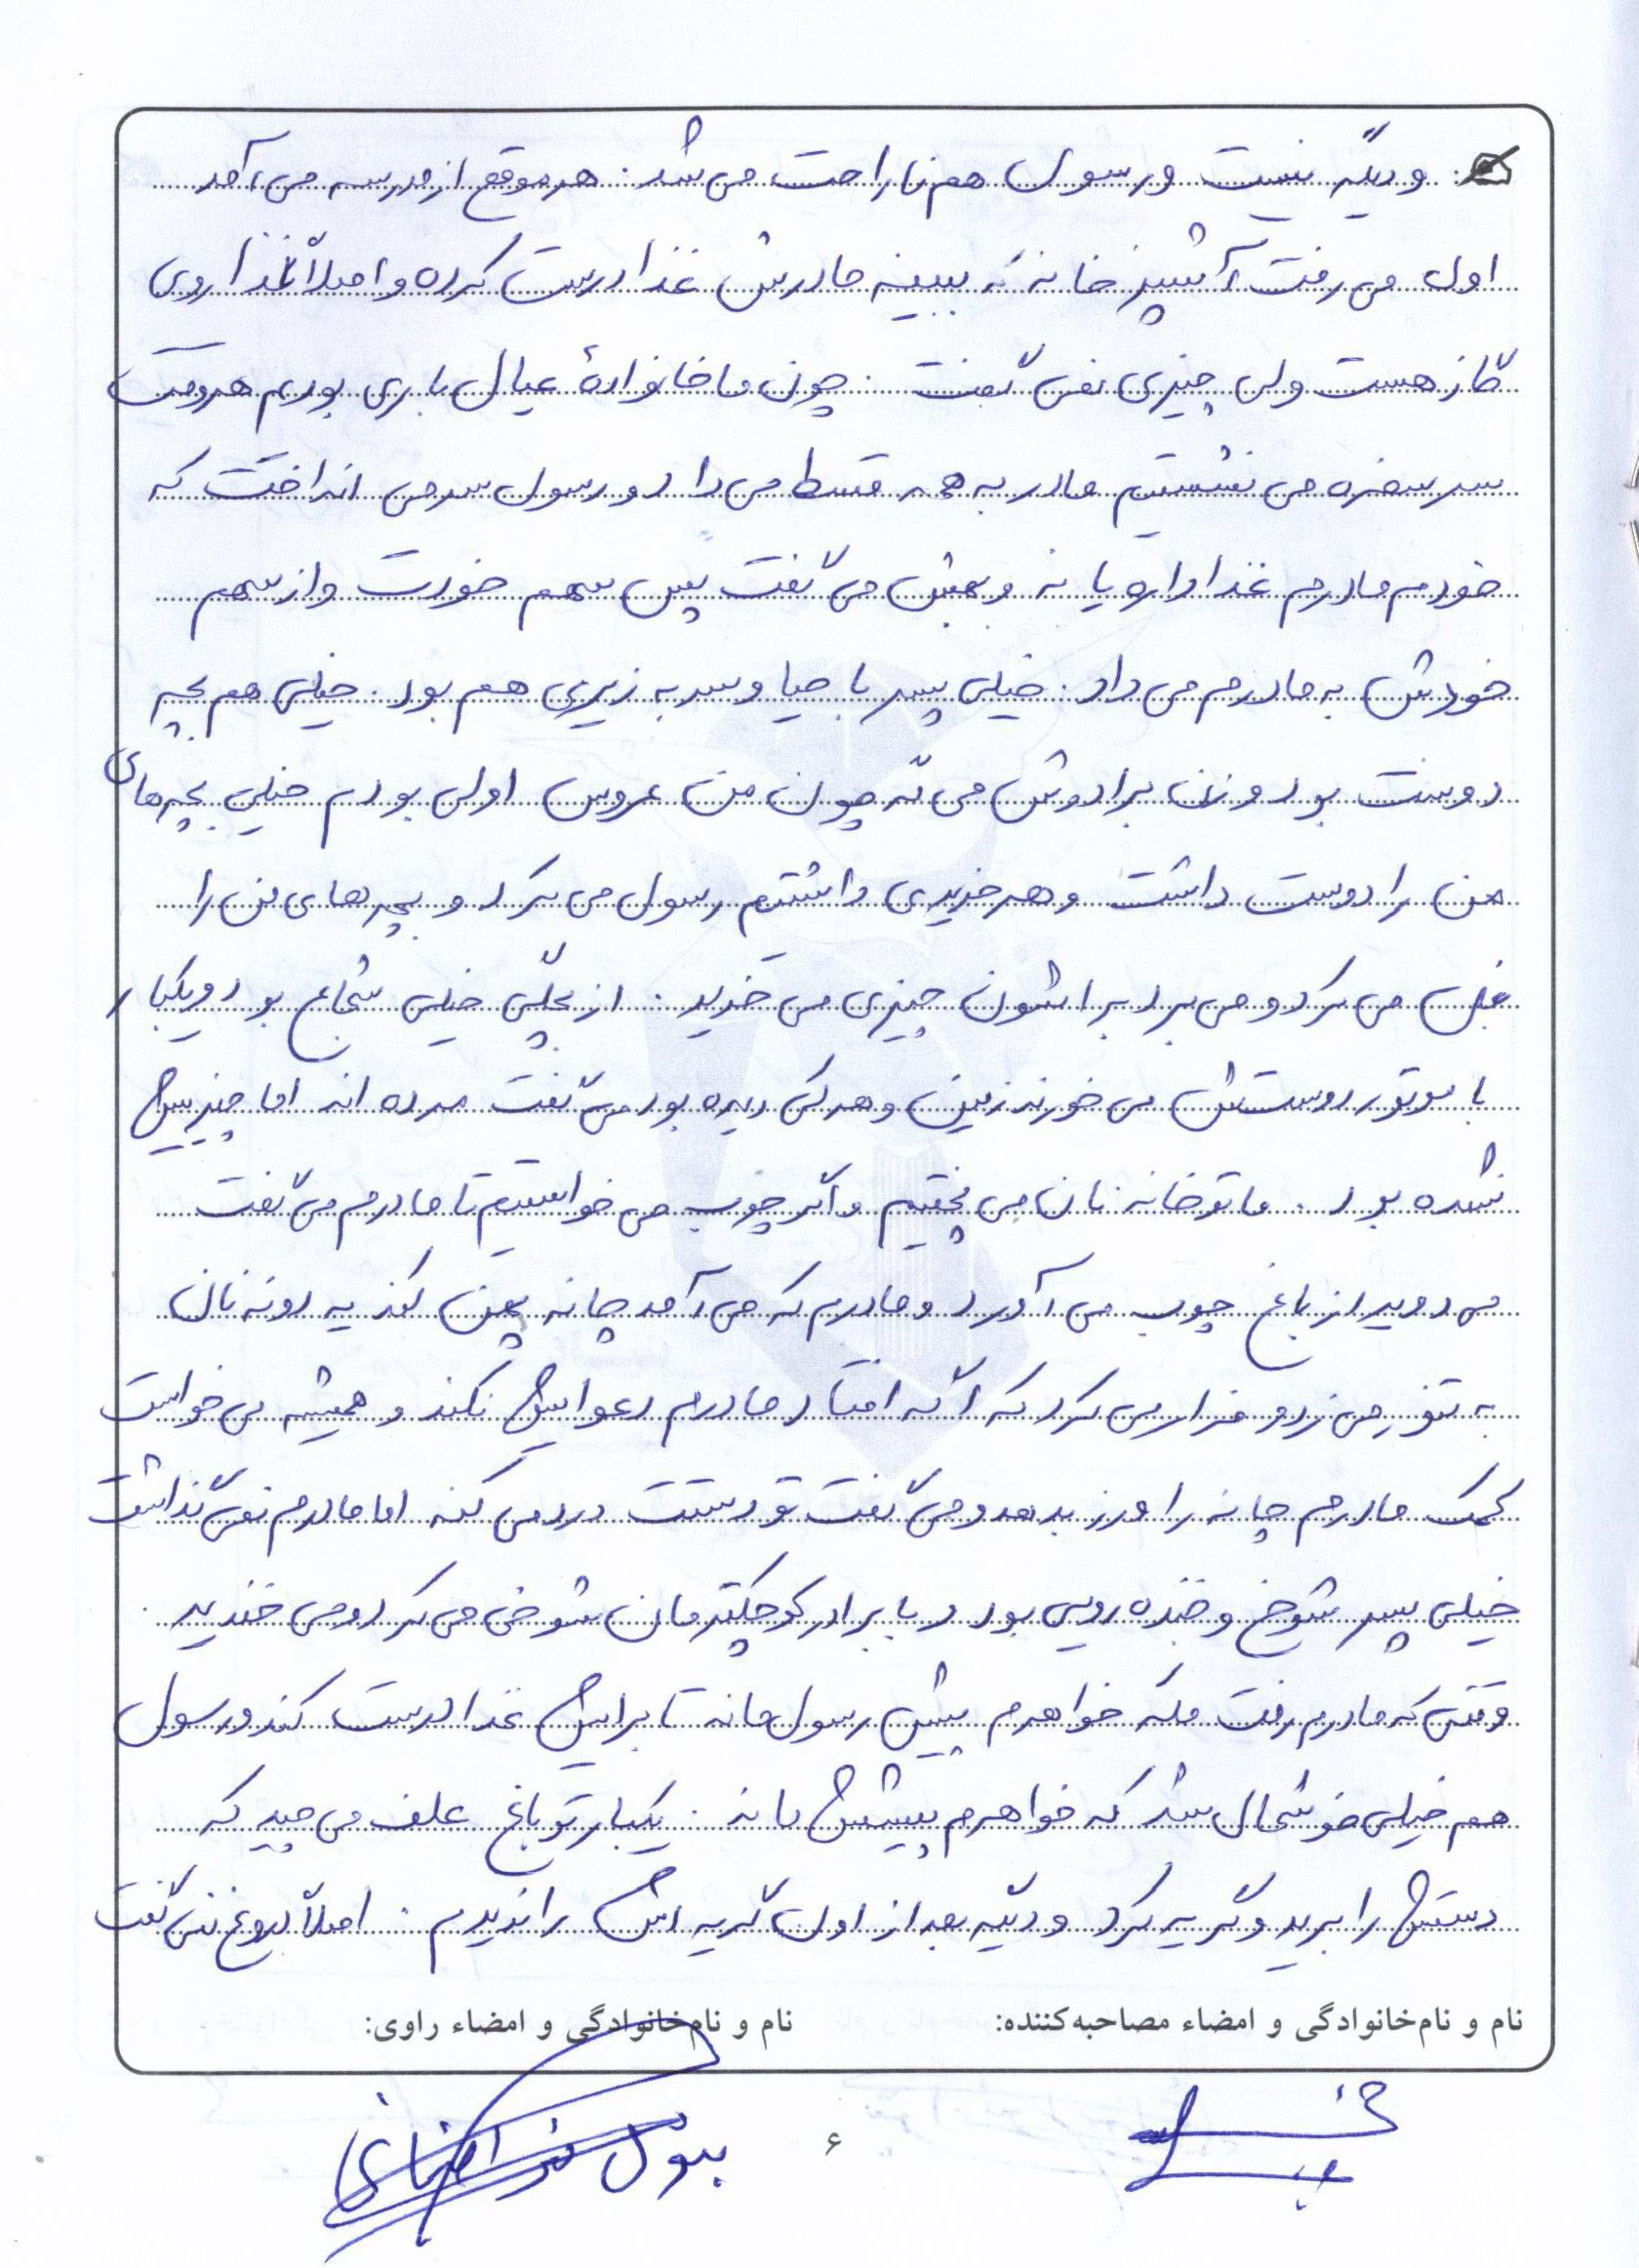 و دیگه نیست و رسول هم ناراحت می شد. هر موقع از مدرسه می آمد
اول می رفت آشپزخانه که ببینه مادرش غذا درست کرده و اصلاً غذا روی
گاز هست ولی چیزی نمی گفت. چون ما خانوادهٔ عیال باری بودیم هر وقت
سر سفره می نشستیم مادر به همه قسط می داد و رسول سر می انداخت که
خود مادرم غذا داره یا نه و بهش می گفت پس سهم خودت و از سهم
خودش به مادرم می داد. خیلی پسر با حیا و سر به زیری هم بود. خیلی هم بچه
دوست بود و زن برادرش می گه چون من عروس اولی بودم خیلی بچه های
من را دوست داشت و هر خریدی داشتیم رسول می کرد و بچه های من را
بغل می کرد و می برد براشون چیزی می خرید. از بچگی خیلی شجاع بود و یکبار
با موتور دوستش می خورند زمین و هر کی دیده بود می گفت مرده اند اما چیزیش
نشده بود. ما تو خانه نان می پختیم و اگر چوب می خواستیم تا مادرم می گفت
می دوید از باغ چوب می آورد و مادرم که می آمد چانه پهن کند یه دونه نان
به تنور می زد و فرار می کرد که اگه افتاد مادرم دعوایش نکند و همیشه می خواست
کمک مادرم چانه را ورز بدهد و می گفت تو دستت درد می کنه اما مادرم نمی گذاشت
خیلی پسر شوخ و خنده رویی بود و با برادر کوچکترمان شوخی می کرد و می خندید.
وقتی که مادرم رفت مکه خواهرم پیش رسول مانه تا برایش غذا درست کند و رسول
هم خیلی خوشحال شد که خواهرم پیشش مانه. یکبار تو باغ علف می چید که
دستش را برید و گریه کرد و دیگه بعد از اون گریه اش را ندیدم. اصلاً دروغ نمی گفت
نام و نام‌خانوادگی و امضاء مصاحبه‌کننده: نام و نام‌خانوادگی و امضاء راوی:
۶